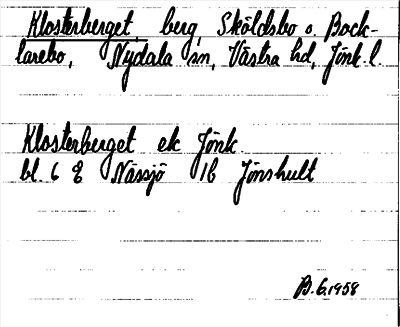 Klosterberget, berg, Sköldsbo o. Bock-
larebo, Nydala sn, Västra hd, Jönk. l.
Klosterberget ek Jönk.
bl. 6 Nässjö 1b Jönshult
B. G. 1958